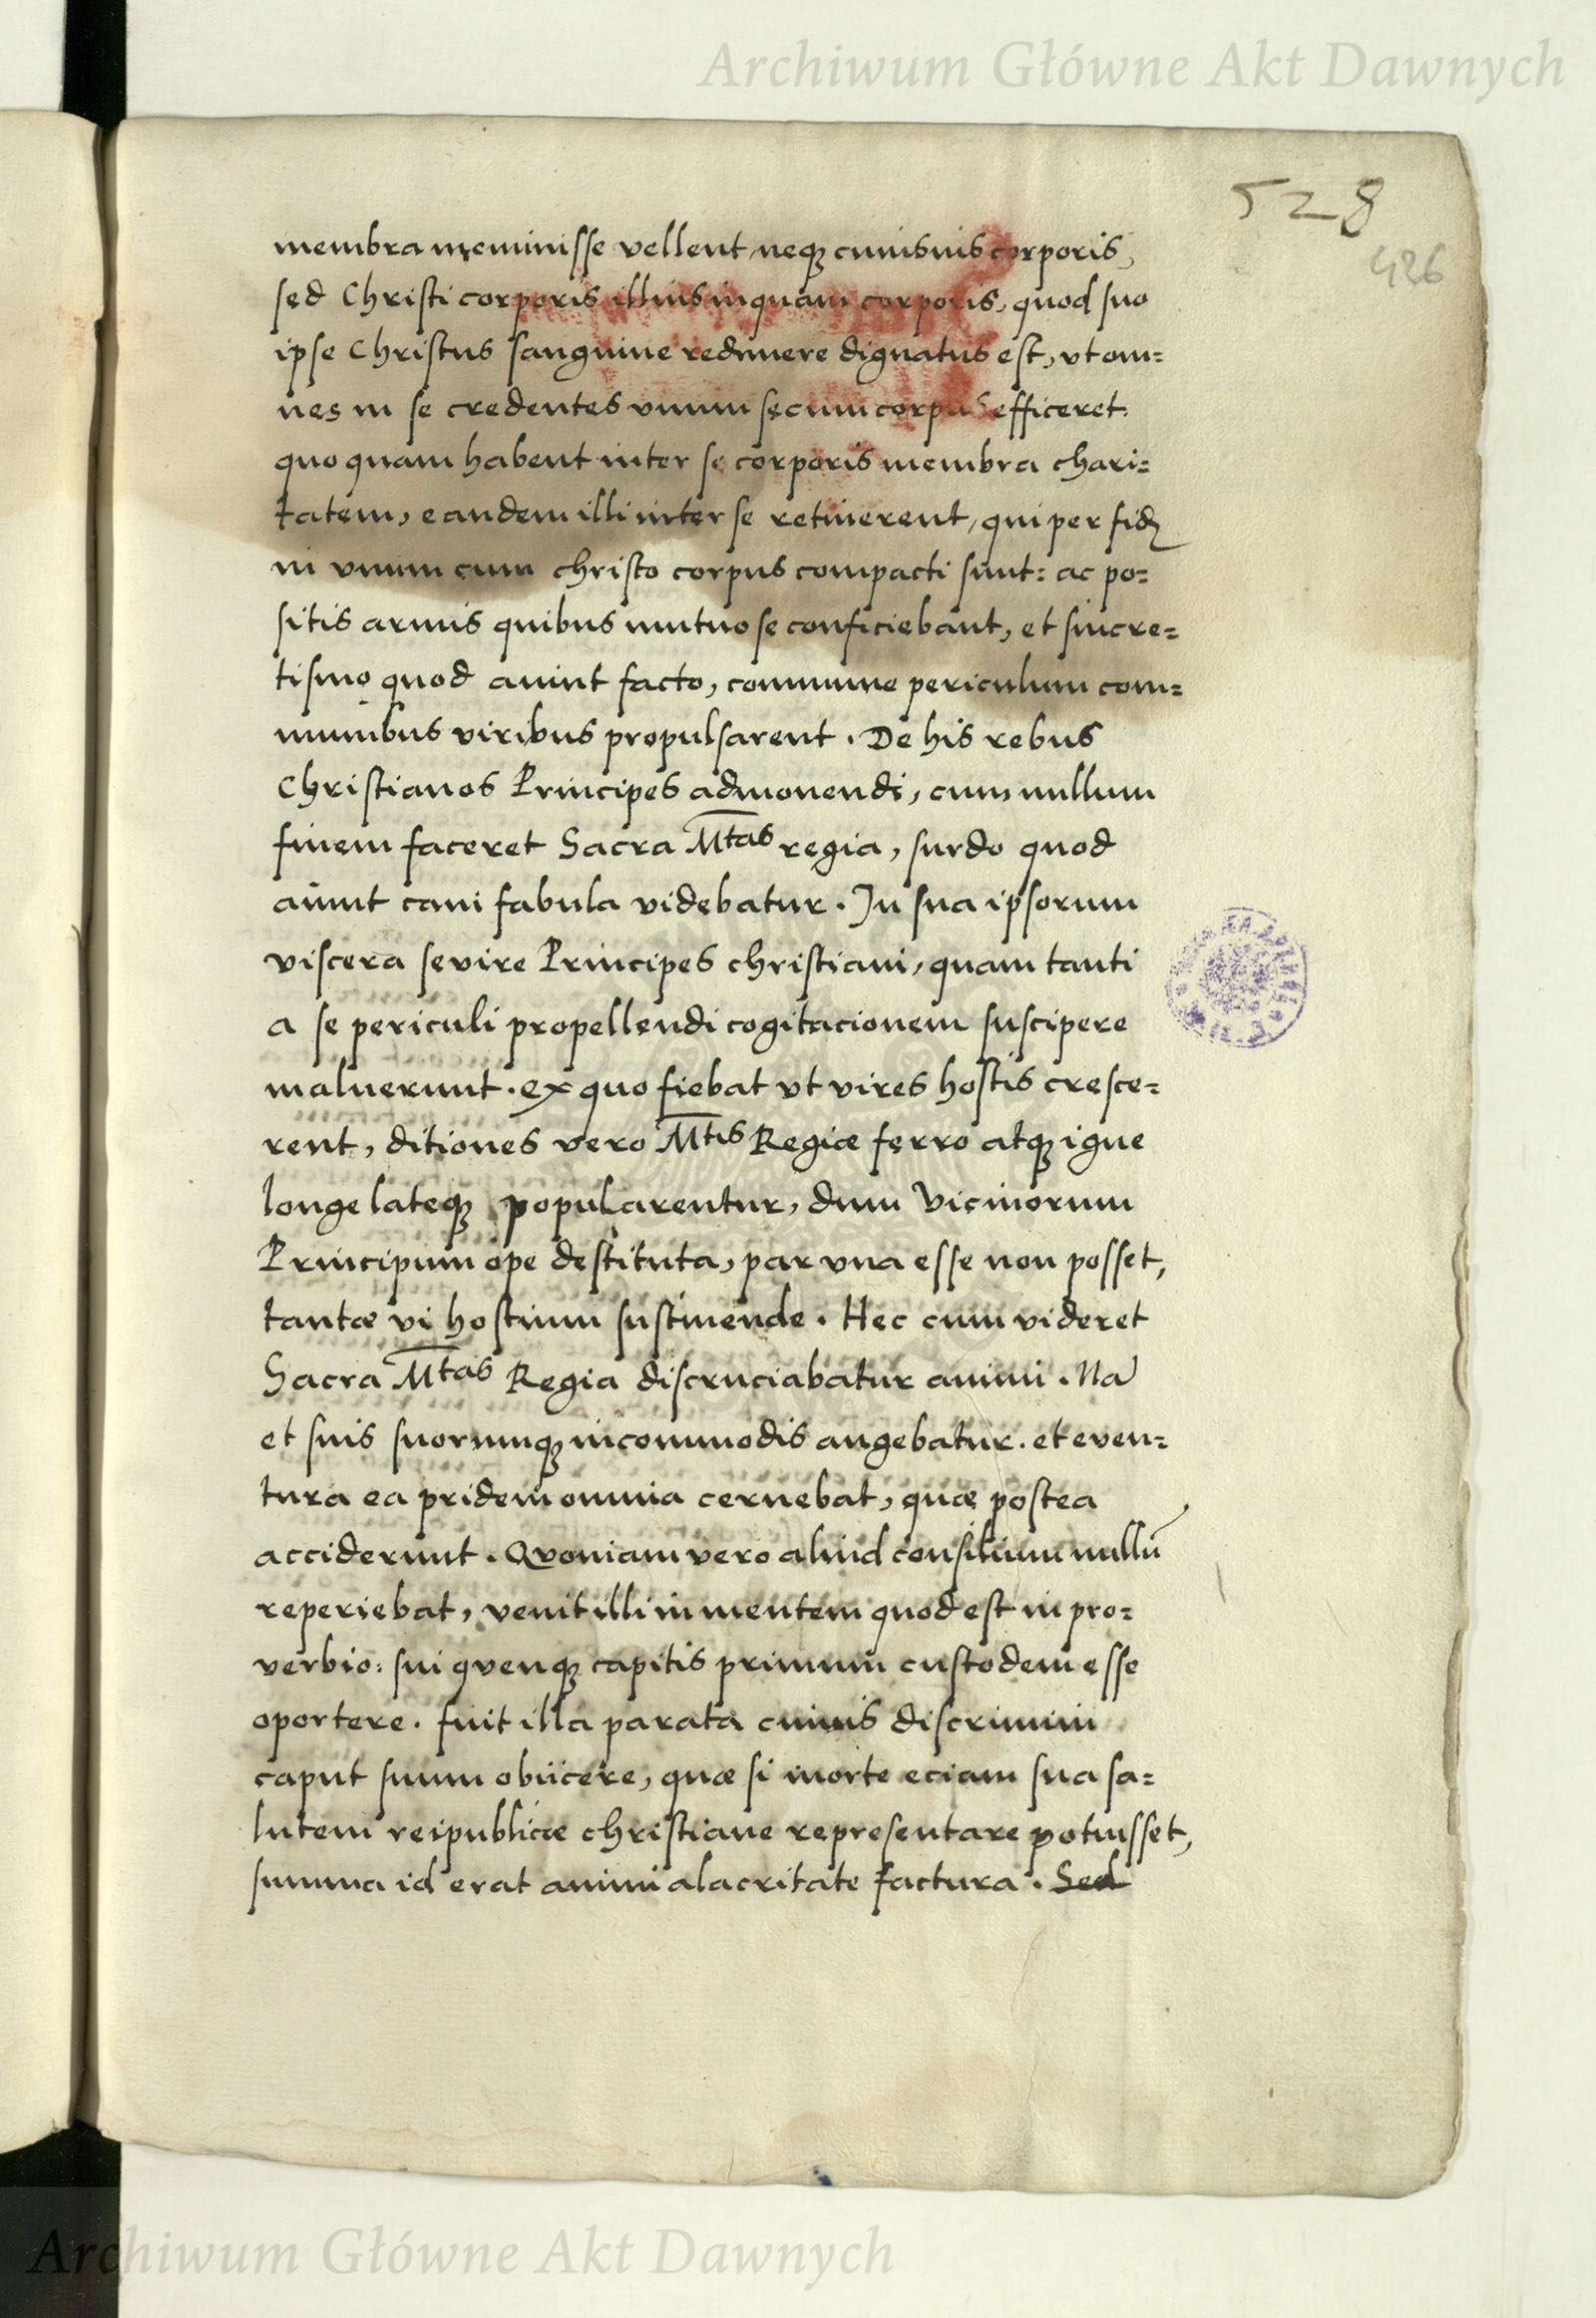 Archiwum Główne Akt Dawnych
528
426
membra meminisse vellent, neqꝫ cuiusuis corporis,
sed Christi corporis illius inquam corporis, quod suo
ipse Christus sanguine redimere dignatus est, vt om=
nes in se credentes vnum secum corpus efficeret:
quo quam habent inter se corporis membra chari=
tatem, eandem illi inter se retinerent, qui per fidẽ
in vnum cum christo corpus compacti sunt: ac po=
sitis armis quibus mutuo se conficiebant, et sincre=
tismo quod aiunt facto, commune periculum com=
munibus viribus propulsarent. De his rebus
Christianos Principes admonendi, cum nullum
finem faceret Sacra Mtas regia, surdo quod
aiunt cani fabula videbatur. In sua ipsorum
viscera sevire Principes christiani, quam tanti
a se periculi propellendi cogitacionem suscipere
maluerunt. ex quo fiebat vt vires hostis cresce=
rent, ditiones vero Mtis Regiæ ferro atqꝫ igne
longe lateqꝫ popularentur, dum vicinorum
Principum ope destituta, par vna esse non posset,
tantæ vi hostium sustinende. Hec cum videret
Sacra Mtas Regia discruciabatur animi. Nã
et suis suorumqꝫ incommodis angebatur. et even=
tura ea pridem omnia cernebat, quæ postea
acciderunt. Qvoniam vero aliud consilium nullũ
reperiebat, venit illi in mentem quod est in pro=
verbio: sui qvenqꝫ capitis primum custodem esse
oportere. fuit illa parata cuiuis discrimini
caput suum obiicere, quæ si morte eciam sua sa=
lutem reipublicæ christiane representare potuisset,
summa id erat animi alacritate factura. Sed
Archiwum Główne Akt Dawnych